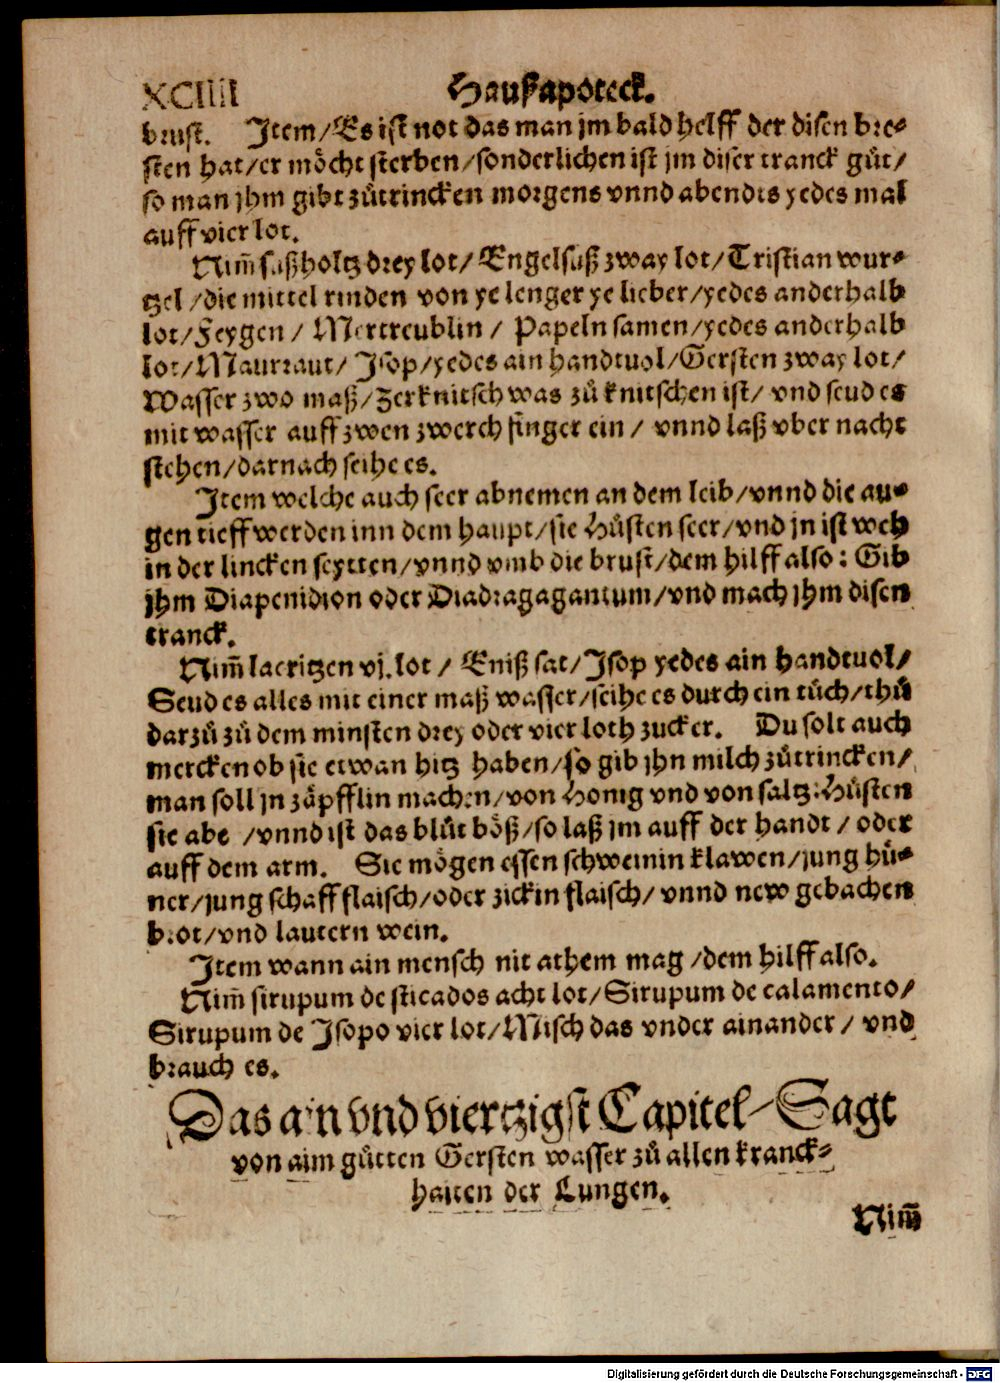 XCIIII Haußapoteck.
brust. Item/Es ist not das man jm bald helff der disen bre-
sten hat/er möcht sterben/sonderlichen ist jm diser tranck gůt/
so man jhm gibt zůtrincken morgens vnnd abendts yedes mal
auff vier lot.
Nim̃ süßholtz drey lot/ Engelsüß zway lot/Tristian wur-
tzel /die mittel rinden von ye lenger ye lieber/yedes anderhalb
lot/Feygen / Mertreublin / Papeln samen/yedes anderhalb
lot/Maurraut/ Isop/yedes ain handtuol/Gersten zway lot/
Wasser zwo maß/Zerknitsch was zů knitschen ist/ vnd seud es
mit wasser auff zwen zwerch finger ein / vnnd laß vber nacht
stehen/darnach seihe es.
Item welche auch seer abnemen an dem leib/vnnd die au-
gen tieff werden inn dem haupt/sie Hůsten seer/vnd jn ist weh
in der lincken seytten/vnnd vmb die brust/dem hilff also: Gib
jhm Diapenidion oder Diadragagantum/vnd mach jhm disen
tranck.
Nim̃ lacritzen vj. lot / Eniß sat/Isop yedes ain handtuol/
Seud es alles mit einer maß wasser/seihe es durch ein tůch/thů
darzů zů dem minsten drey oder vier loth zucker. Du solt auch
mercken ob sie etwan hitz haben/so gib jhn milch zůtrincken/
man soll jn zäpfflin machen/von Honig vnd von saltz: Hůsten
sie abe /vnnd ist das blůt böß/so laß jm auff der handt / oder
auff dem arm. Sie mögen essen schweinin klawen/jung hü-
ner/jung schaff flaisch/oder zickin flaisch/ vnnd new gebachen
brot/vnd lautern wein.
Item wann ain mensch nit athem mag /dem hilff also.
Nim̃ sirupum de sticados acht lot/Sirupum de calamento/
Sirupum de Isopo vier lot/Misch das vnder ainander / vnd
brauch es.
Das ain vnd viertzigst Capitel/Sagt
von aim gůtten Gersten wasser zů allen kranck-
haiten der Lungen.
Nim̃
Digitalisierung gefördert durch die Deutsche Forschungsgemeinschaft - DFG